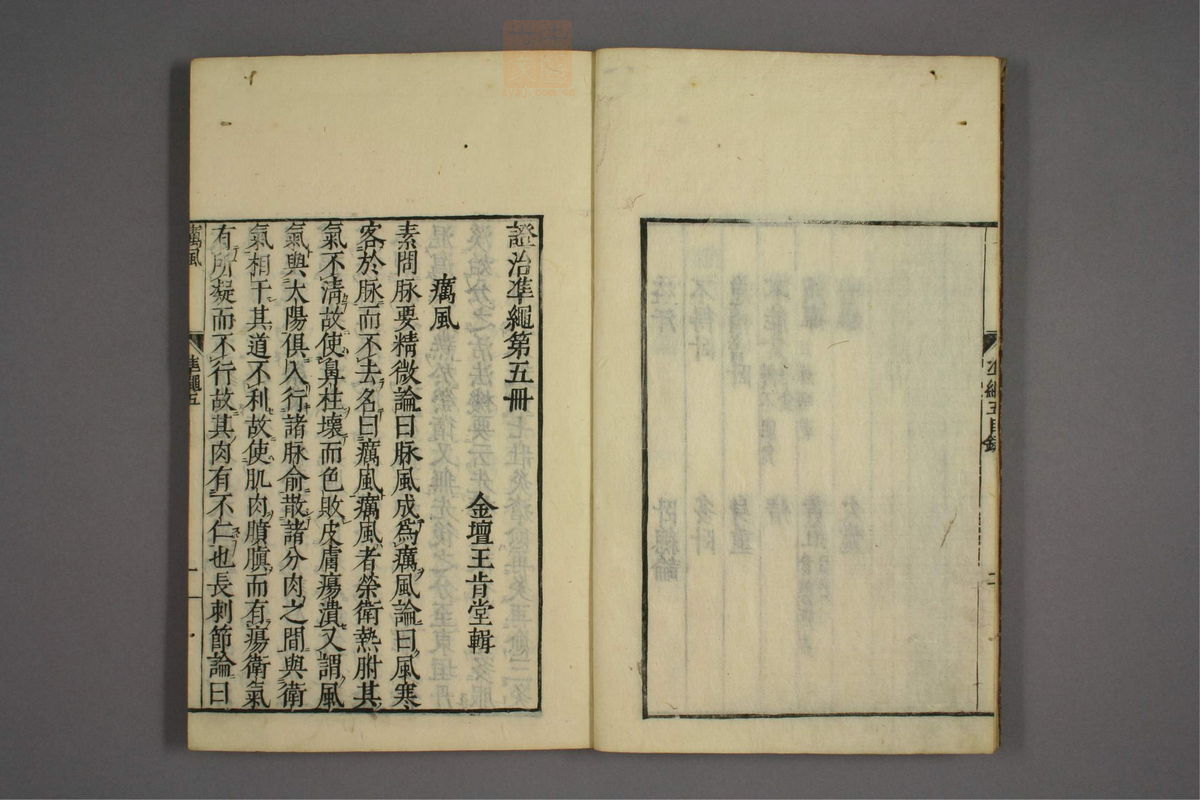 準繩五目錄
二
證治準繩第五冊
金壇王肯堂輯
癘風
素問脉要精微論曰脉風成爲癘風論曰風寒
客於脉而不去名曰癘風癘風者榮衛熱胕其
氣不清故使鼻柱壞而色敗皮膚瘍潰又謂風
氣與太陽俱入行諸脉俞散諸分肉之間與衛
氣相干其道不利故使肌肉䐜而有瘍衛氣
有所凝而不行故其肉有不仁也長刺節論曰
癘風
準繩五
一